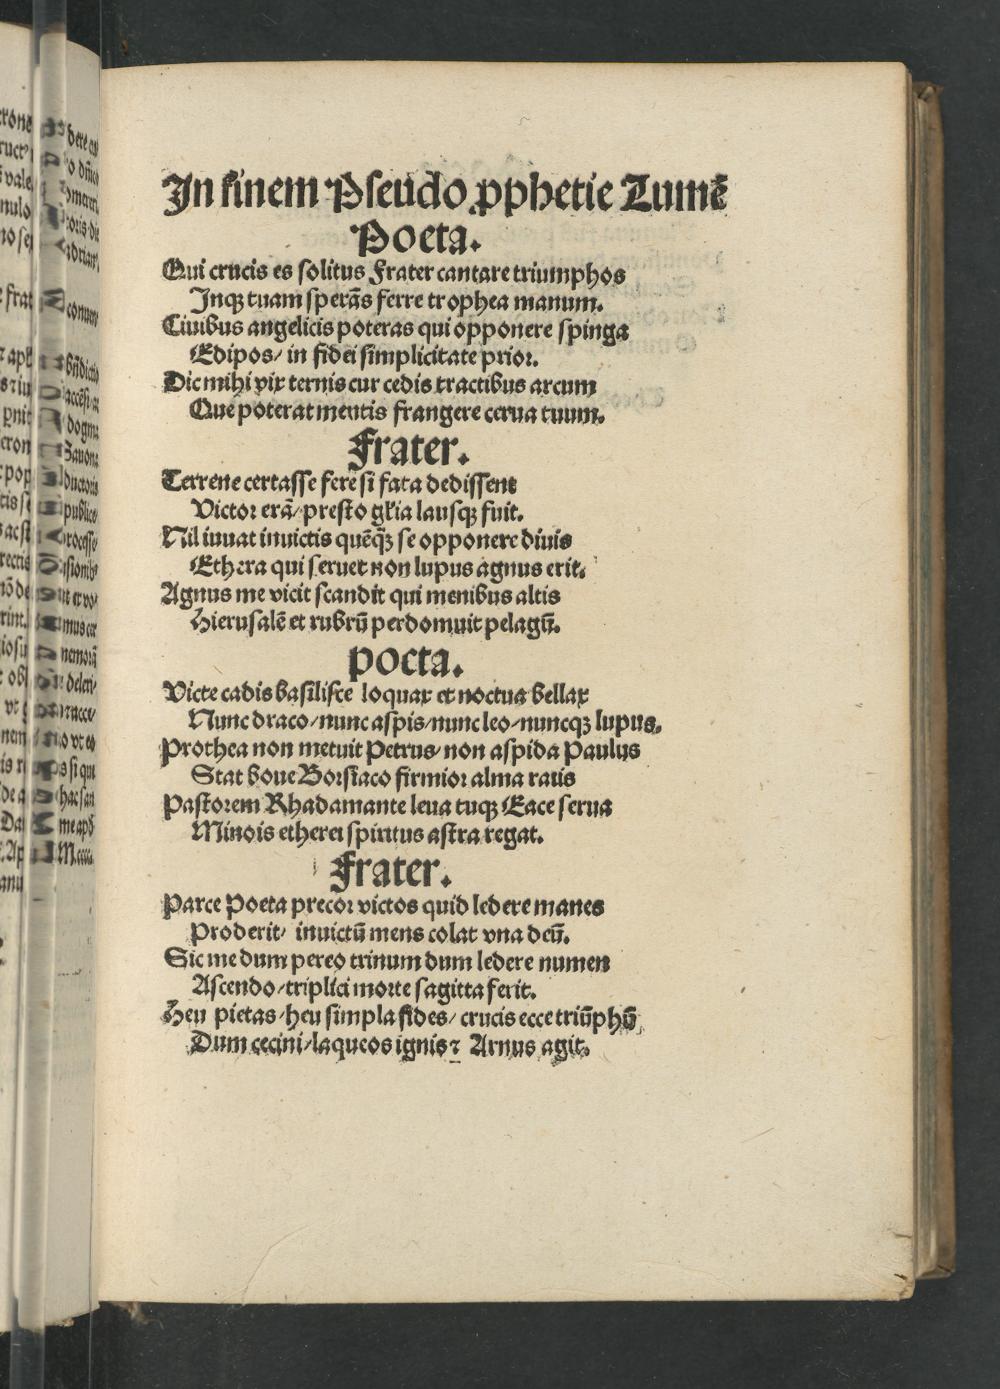 In finem Pseudo ꝓphetie Tumē
Poeta.
Qui crucis es solitus Frater cantare triumphos
Inqꝫ tuam sperās ferre trophea manum.
Ciuibus angelicis poteras qui opponere spinga
Edipos/ in fidei simplicitate prior.
Dic mihi vix ternis cur cedis tractibus arcum
Quē poterat mentis frangere cerua tuum.
Frater.
Terrene certasse fere si fata dedissent
Victor erā/ presto gl̄ia lausqꝫ fuit.
Nil iuuat inuictis quēqꝫ se opponere diuis
Ethera qui seruet non lupus agnus erit.
Agnus me vicit scandit qui menibus altis
Hierusalē et rubrū perdomuit pelagū.
Poeta.
Victe cadis basilisce loquax et noctua bellax
Nunc draco/nunc aspis/nunc leo/nuncqꝫ lupus.
Prothea non metuit Petrus/ non aspida Paulus
Stat boue Borsiaco firmior alma ratis
Pastorem Rhadamante leua tuqꝫ Eace serua
Minois etherei spiritus astra regat.
Frater.
Parce Poeta precor victos quid ledere manes
Proderit/ inuictū mens colat vna deū.
Sic me dum pereo trinum dum ledere numen
Ascendo/triplici morte sagitta ferit.
Heu pietas/heu simpla fides/ crucis ecce triūphū
Dum cecini/laqueos ignis ⁊ Arnus agit.